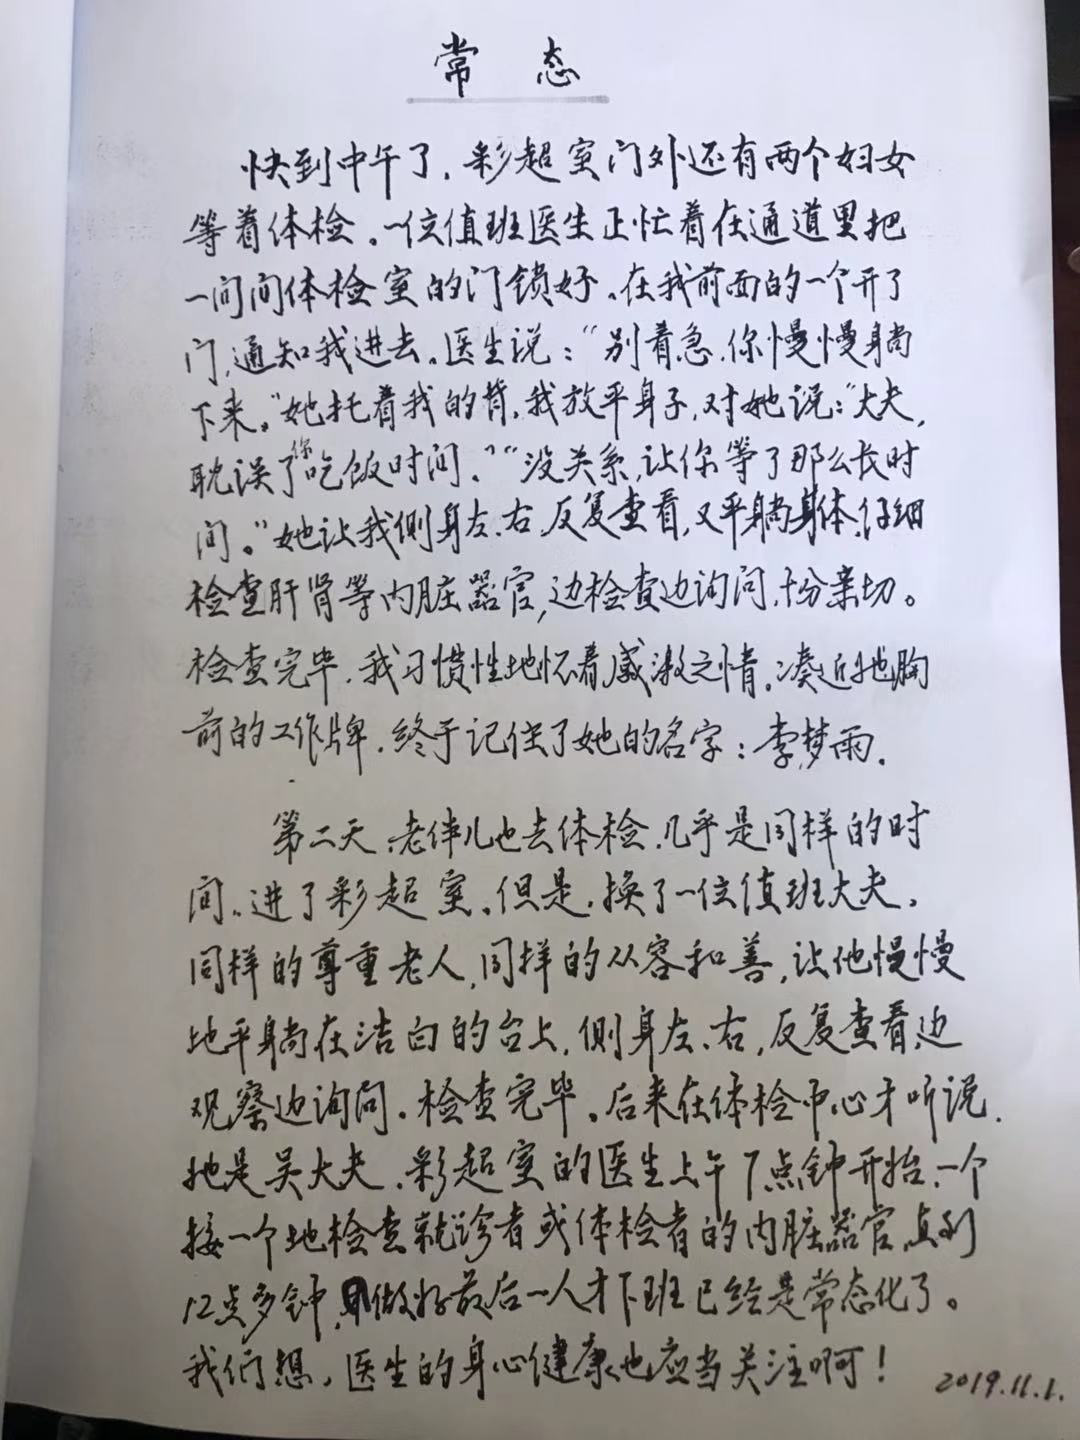 常 态
快到中午了，彩超室门外还有两个妇女
等着体检。一位值班医生正忙着在通道里把
一间间体检室的门锁好。在我前面的一个开了
门，通知我进去。医生说：“别着急，你慢慢躺
下来。”她托着我的背，我放平身子，对她说：“大夫，
耽误了你吃饭时间。”“没关系，让你等了那么长时
间。”她让我侧身左、右，反复查看，又平躺身体，仔细
检查肝肾等内脏器官，边检查边询问，十分亲切。
检查完毕，我习惯性地怀着感激之情，凑近她胸
前的工作牌，终于记住了她的名字：李梦雨。
第二天，老伴儿也去体检，几乎是同样的时
间，进了彩超室。但是，换了一位值班大夫，
同样的尊重老人，同样的从容和善，让他慢慢
地平躺在洁白的台上，侧身左、右，反复查看，边
观察边询问。检查完毕。后来在体检中心才听说，
她是吴大夫。彩超室的医生上午7点钟开始，一个
接一个地检查就诊者或体检者的内脏器官，直到
12点多钟，做好最后一人才下班已经是常态化了。
我们想，医生的身心健康也应当关注啊！
2019.11.1.